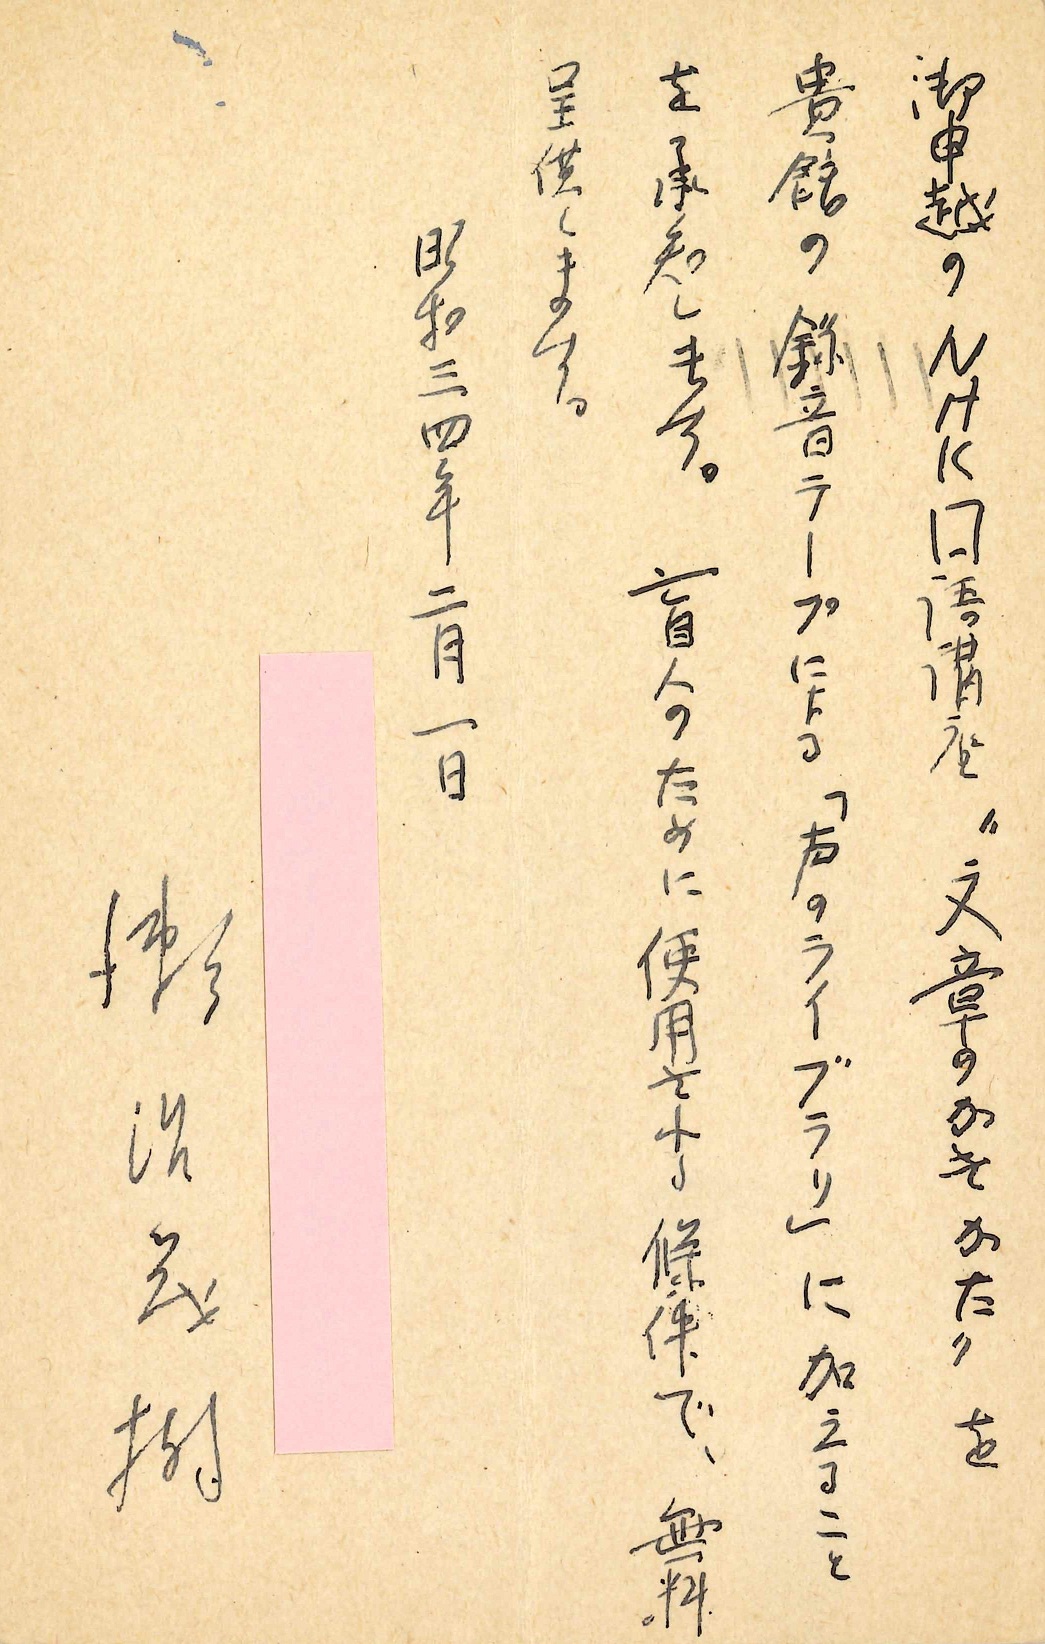 御申越のNHK国語講座〝文章のかきかた〟を
貴館の録音テープによる「声のライブラリ」に加えること
を承知します。盲人のために使用する條件で、無料
呈供します。
昭和三四年二月一日
瀬沼茂樹